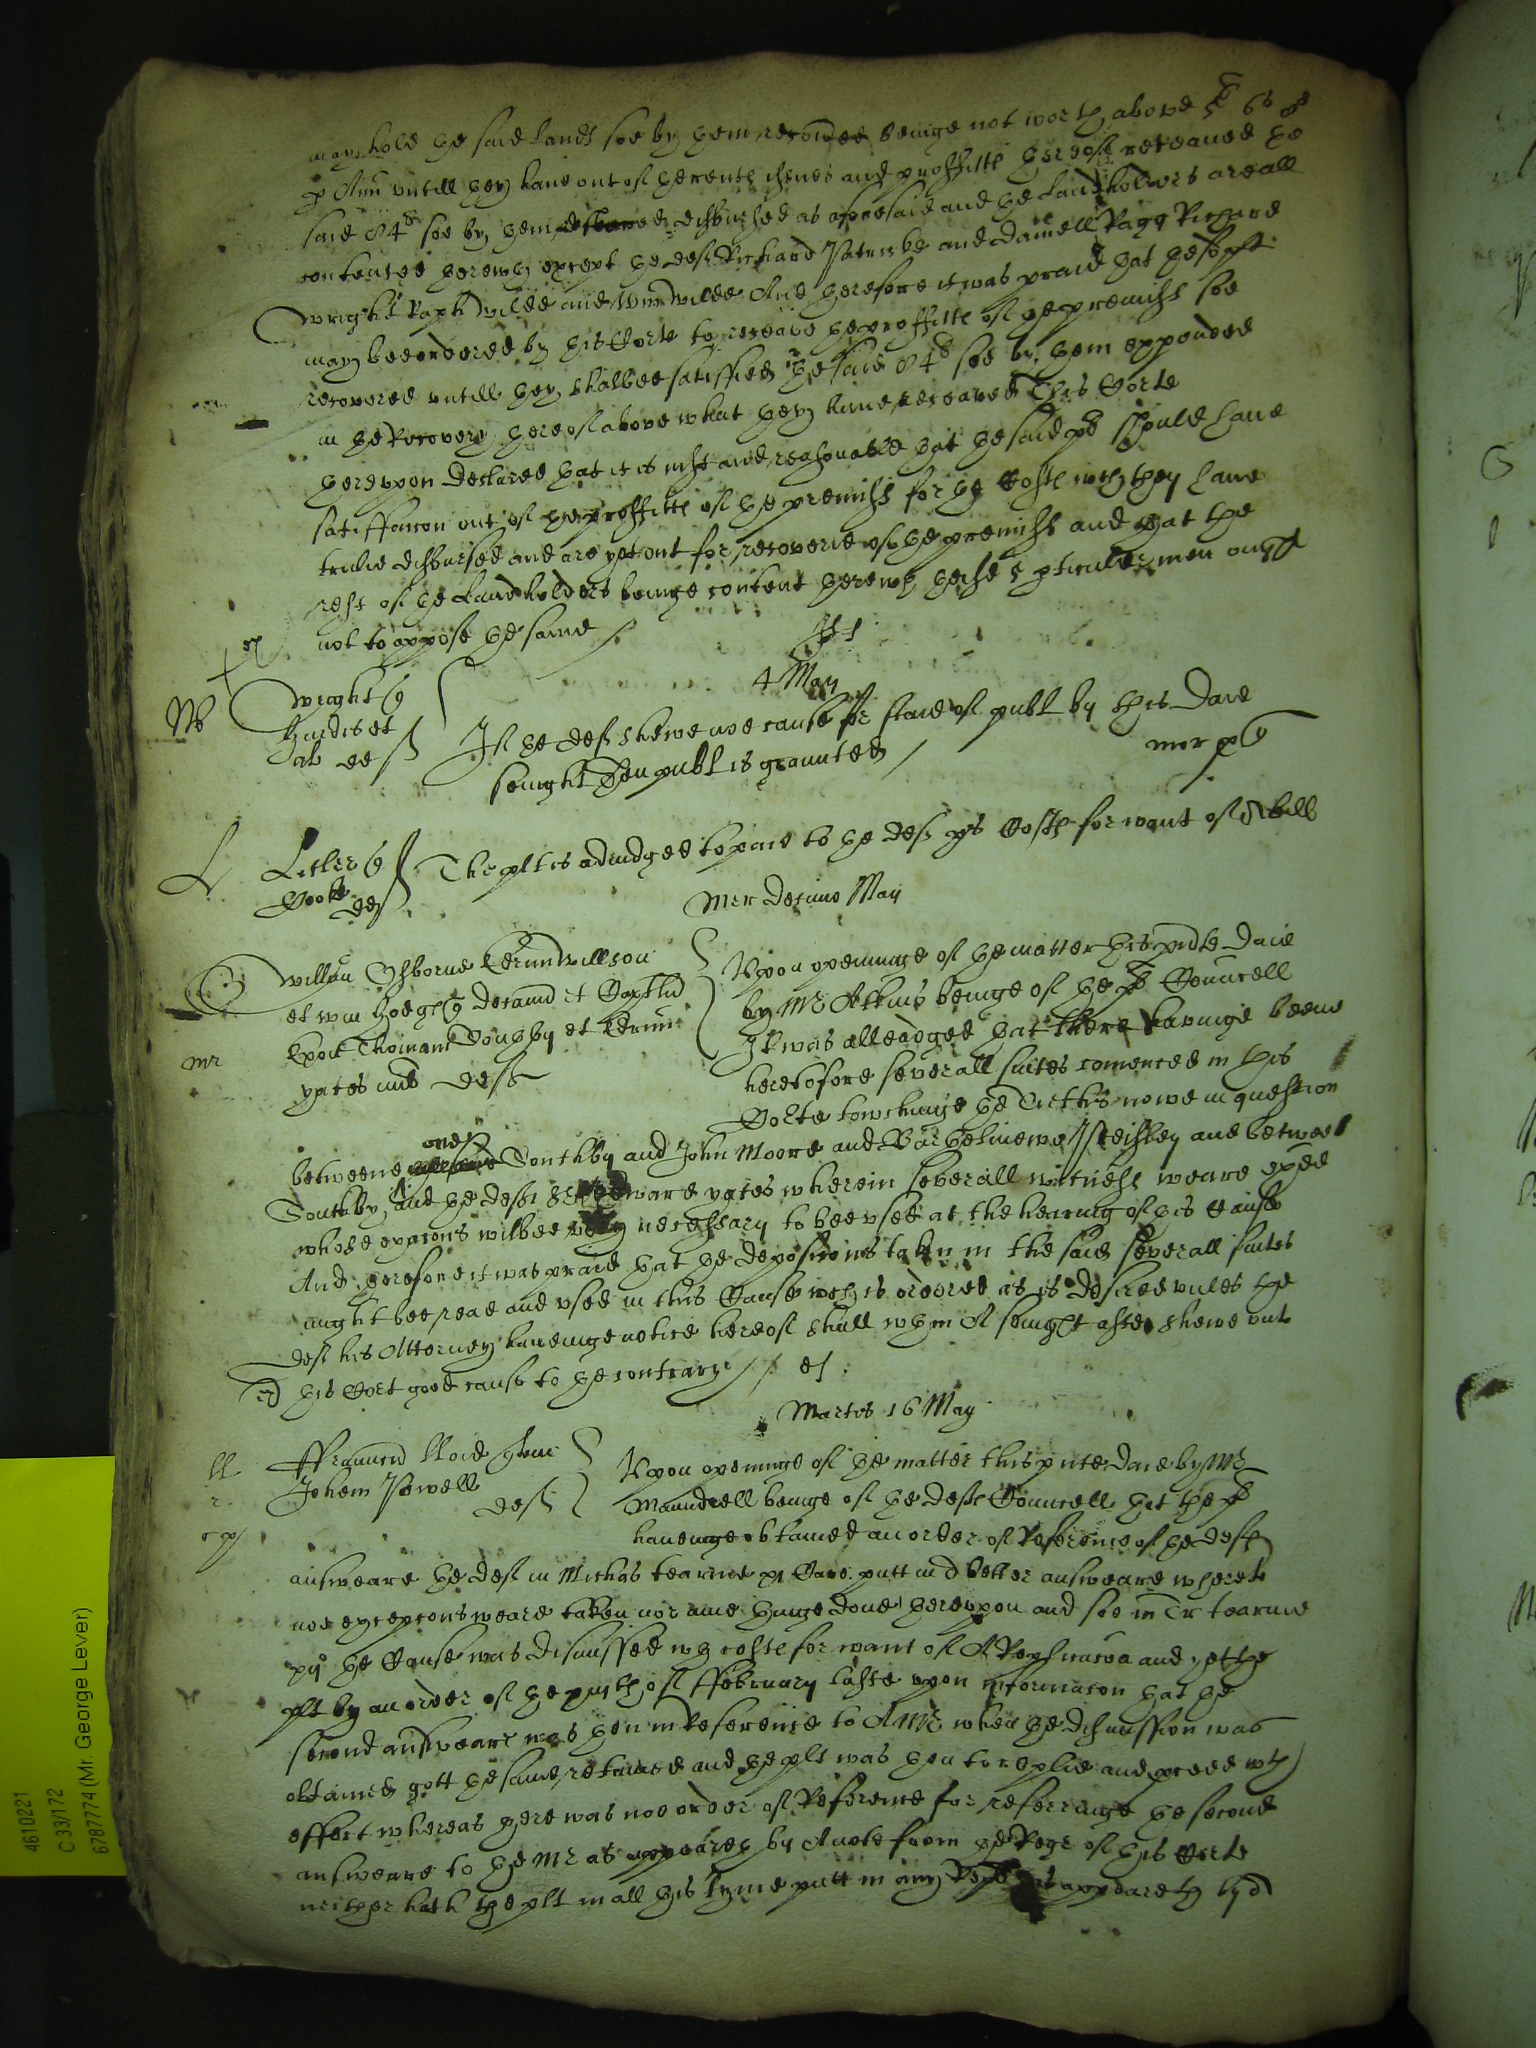 may hold the said lands soe by them recovered beinge not worth above 5l 6s 8d
p Ann untill they have out of the rents issues and proffitts thereof receaved the
said 84l soe by them disbursed as aforesaid and the landholders are all
contented therewth except the deft Richard and Daniell Ragg Richard
Wright Raph Wilde and Wm Wilde And therefore it was praid that the plts
may bee ordered by this Corte to receave the proffitts of the premisses soe
recovered untill they shalbee satisfied the said 84l soe by them expended
in the Recovery thereof above what they have receaved This Corte
thereupon declared that it is iust and reasonable that the said plts should have
satisfaccon out of the proffitts of the premisses for the Costs wch they have
trulie disbursed and are yet out for recoverie of the premisses and that the
rest of the landholders beinge content therewth these pticuler men ought
not to oppose the same
4 May
Wright
al def
If the deft shewe noe cause for staie of publ by this daie
sevnight then publ is graunted
Litler
Poole def
The plt is adiudged to paie to the deft Costs for want of A bill
Mer decimo May
Willm Osborne Willson
et Wm Hodge
Thomam et
yates def
Upon openinge of the matter this pnte daie
by Mr Atkins beinge of the plts Councell
It was alleadged that there havinge beene
heretofore severall suites comenced in this
Corte towchinge the Tiethes nowe in question
betweene one Southby and John Moore and and betweene
Southby and the deft yates wherein severall witnesses weare exed
whose exacons wilbee very necessary to bee used at the hearing of this Cause
And therefore it was praid that the deposicons taken in the said severall suites
might bee read and used in this Cause wch is ordered as is desired unles the
deft his Attorney haveinge notice hereof shall wthin A sevnight after shewe unto
this Cort good cause to the contrary
Martis 16 May
ffrancus lloid
Johem Powell
def
Upon openinge of the matter this pnte daie by Mr
Maundrell beinge of the defts Councell that the plt
haveinge obtained an order of Reference of the defts
answeare the deft in Michas tearme putt in A better answeare whereto
noe excepcons weare taken nor anie thinge done thereupon and soe in Tr tearme
the Cause was dismissed wth costs for want of A Replicacon and yet the
plt by an order of the of ffebruary laste upon informacon that the
second answeare was then in Reference to A Mr when the dismission was
obtained gott the same retained and the plt was then to replie and pceed wth
effect whereas there was noe order of Reference for referringe the second
answeare to the Mr as appeareth by A note from the Regr of this Corte
neither hath the plt in all this tyme putt in any as appeareth by A
4610221
C 33/172
6787774 (Mr. George Lever)